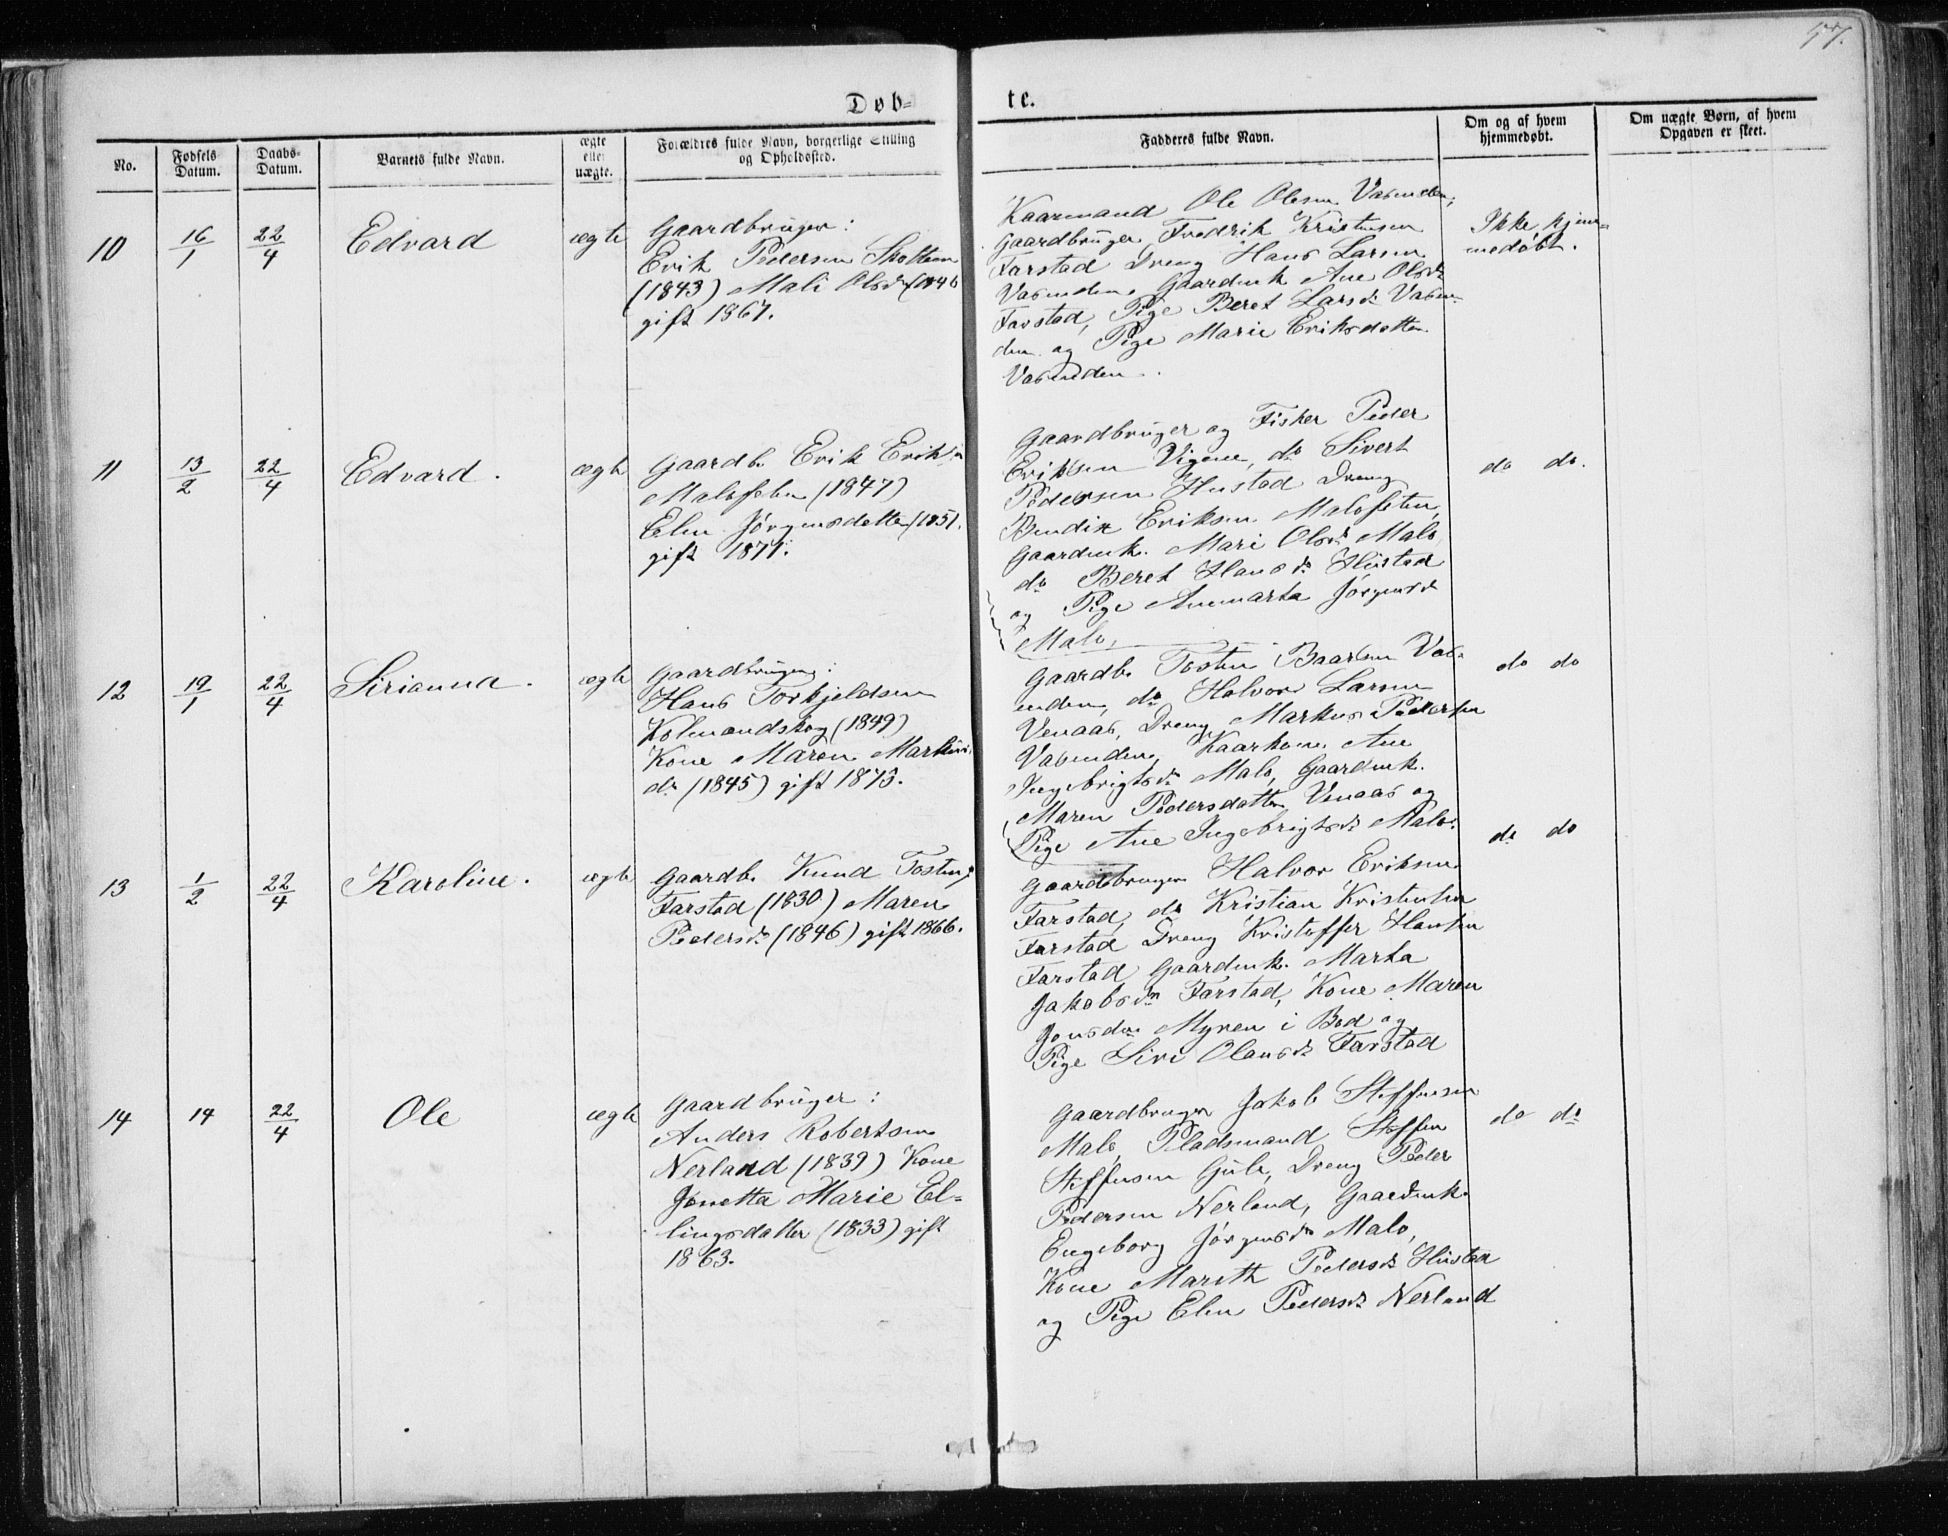 57.
Døb-
te.
No.
Fødsels
Datum.
Daabs-
Datum.
Barnets fulde Navn.
ægte
eller
uægte.
Forældres fulde Navn, borgerlige Stilling
og Opholdssted.
Fadderes fulde Navn.
Om og af hvem
hjemmedøbt.
Om uægte Børn, af hvem
Opgaven er skeet.
10
16/1
22/4
Edvard
ægte
Gaardbruger:
Erik Pedersen Skotten
(1843) Mali Olsd (1846
gift 1867.
Kaarmand Ole Olsen Vasenden,
Gaardbruger Fredrik Kristensen
Farstad Dreng Hans Larsen
Vasenden, Gaardmk Ane Olsdr
Farstad, Pige Beret Larsdr Vasen-
den og Pige Marie Eriksdatter
Vasenden.
Ikke hjem-
medøbt.
11
13/2
22/4
Edvard.
ægte
Gaardb. Erik Eriksen
Maloseten (1847)
Elen Jørgensdatter (1851.
gift 1877.
Gaardbruger og Fisker Peder
Eriksen Vigene, do Sivert
Pedersen Hustad Dreng
Bendix Eriksen Maloseten,
Gaardmk. Mari Olsdr Malo
do Beret Hansdr Hustad
og Pige Anemarta Jørgensdr
Malo,
do do.
12
19/1
22/4
Sirianna.
ægte
Gaardbruger:
Hans Torkjeldsen
Kolmandskog (1849)
Kone Maren Markus-
dr (1845) gift 1873.
Gaardb. Tosten Baardsen Vas-
enden, do Halvor Larsen
Venaas, Dreng Markus Pedersen
Vasenden, Kaarkone Ane
Ingebrigtsdr Malo, Gaardmk.
Maren Pedersdatter Venaas og
Pige Ane Ingebrigtsdr Malo.
do do
13
1/2
22/4
Karoline.
ægte
Gaardb. Knud Tostens
Farstad (1830) Maren
Pedersdr (1846) gift 1866.
Gaardbruger Halvor Eriksen
Farstad, do Kristian Kristensen
Farstad Dreng Kristoffer Hansen
Farstad Gaardmk. Marta
Jakobsdr Farstad, Kone Maren
Jonsdr Myren i Bod og
Pige Siri Olansdr Farstad
do do
14
14
22/4
Ole
ægte
Gaardbruger:
Anders Robertsen
Nerland (1839) Kone
Jonetta Marie El-
lingsdatter (1833) gift
1863.
Gaardbruger Jakob Steffensen
Malo, Pladsmand Steffen
Steffensen Gule, Dreng Peder
Pedersen Nerland, Gaardmk.
Engeborg Jørgensdr Malo,
Kone Marith Pedersdr Hustad
og Pige Elen Pedersdr Nerland
do do